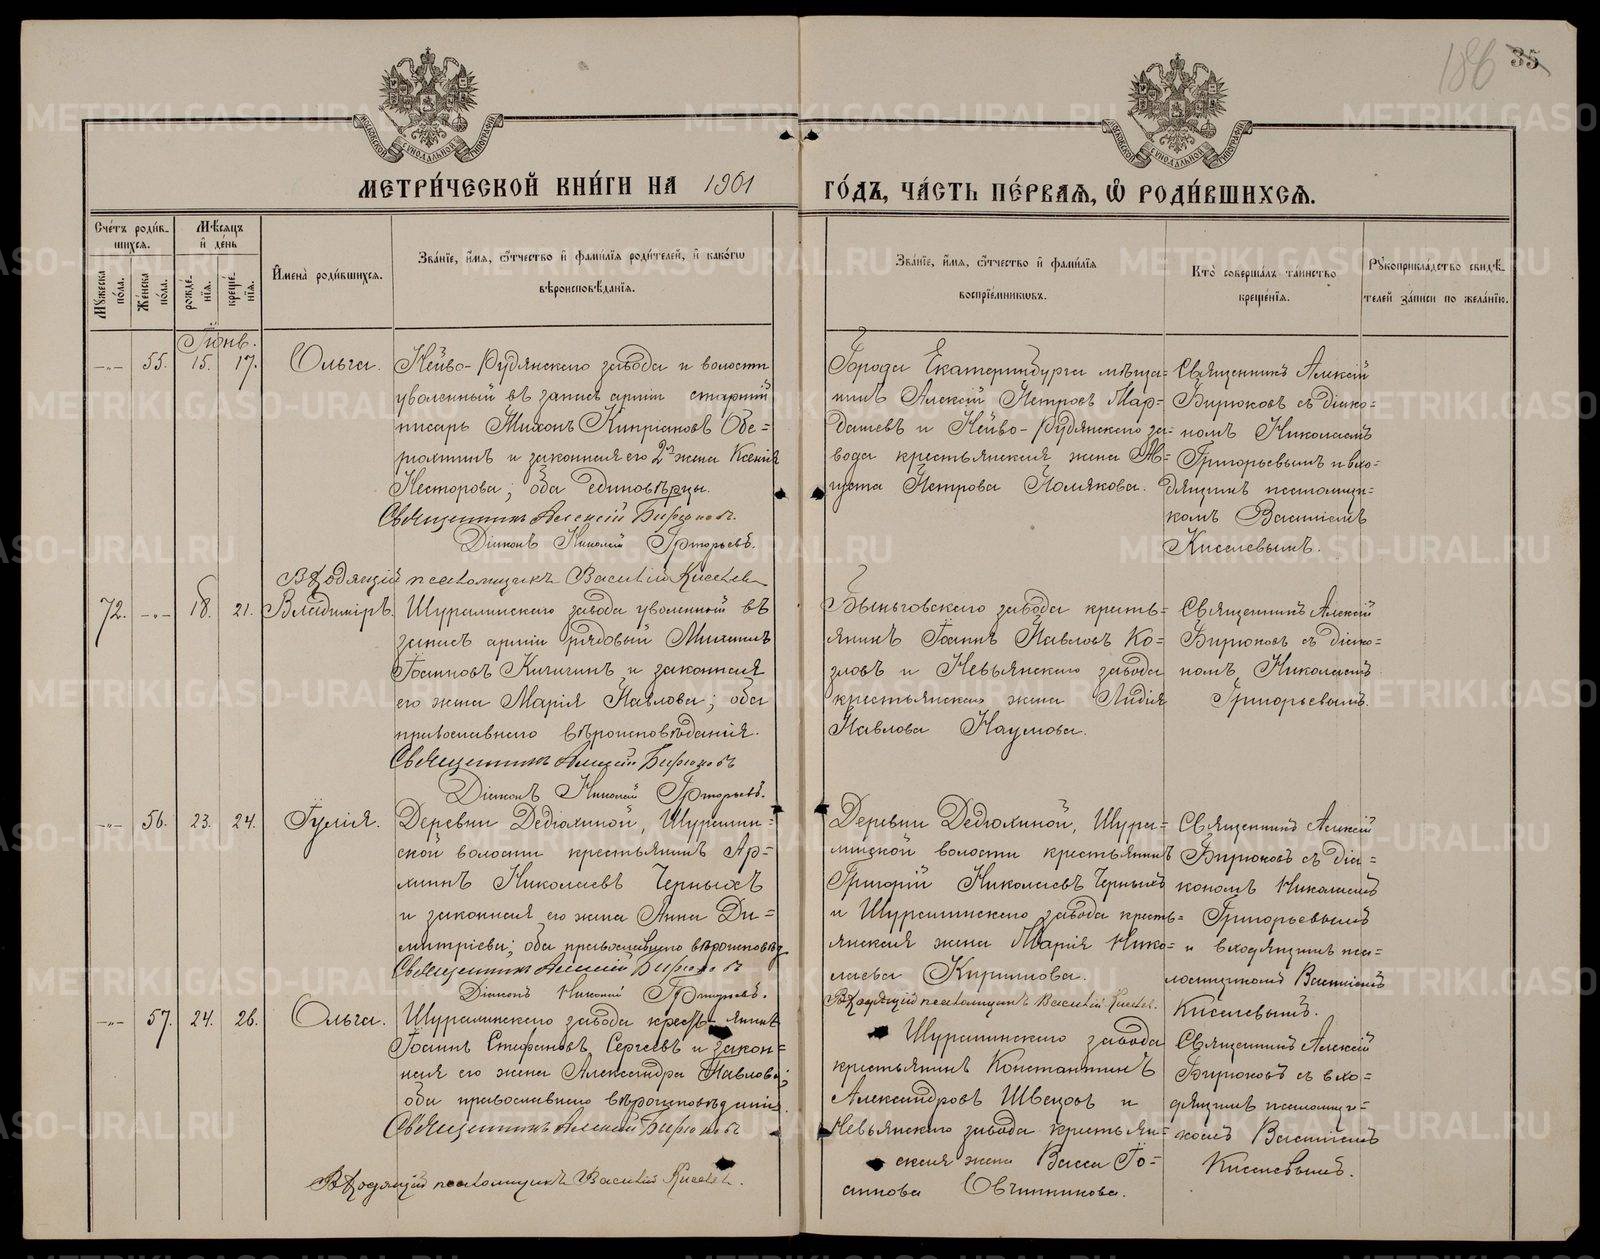 186 35
МОСКОВСКОЙ СѴНОДАЛЬНОЙ ТИПОГРАФІИ
МОСКОВСКОЙ СѴНОДАЛЬНОЙ ТИПОГРАФІИ
МЕТРИ́ЧЕСКОЙ КНИ́ГИ НА 1901 ГО́ДЪ, ЧА́СТЬ ПЕ́РВАѦ, Ѡ РОДИ́ВШИХСѦ.
Сче́тъ роди́в-
шихсѧ.
Мꙋжеска по́ла.
Же́нска по́ла.
Мѣ́сѧцъ
и҆ де́нь
рожде́-
нїѧ.
креще́-
нїѧ.
И҆мена̀ роди́вшихсѧ.
Зва́нїе, и҆́мѧ, ѻ҆́тчество и҆ фами́лїѧ роди́телей, и҆ како́гѡ
вѣроисповѣ́данїѧ.
Зва́нїе, и҆́мѧ, ѻ҆́тчество и҆ фами́лїѧ
воспрїе́мникѡвъ.
Кто̀ соверша́лъ та́инство
креще́нїѧ.
Рꙋкоприкла́дство свидѣ́-
телей за́писи по жела́нїю.
Іюнь.
-„- 55. 15. 17. Ольга.
Нейво-Рудянскаго завода и волости
уволенный въ запасъ арміи старшій
писарь Тихонъ Кипріановъ Обе-
рюхтинъ и законная его 2я жена Ксенія
Несторова; оба единовѣрцы.
Священникъ Алексій Бирюковъ.
Діаконъ Николай Григорьевъ.
Входящій псаломщикъ Василій Киселев
Города Екатеринбурга мѣща-
нинъ Алексій Петровъ Мар-
дашевъ и Нейво-Рудянскаго за-
вода крестьянская жена Ав-
густа Петрова Полякова.
Священникъ Алексій
Бирюковъ съ діако-
номъ Николаемъ
Григорьевымъ и вхо-
дящимъ псаломщи-
комъ Василіемъ
Киселевымъ.
72. -„- 18. 21. Владиміръ.
Шуралинскаго завода уволенный въ
запасъ арміи рядовый Михаилъ
Іоанновъ Кичигинъ и законная
его жена Марія Павлова; оба
православнаго вѣроисповѣданія.
Священникъ Алексій Бирюковъ
Діаконъ Николай Григорьевъ.
Быньговскаго завода кресть-
янинъ Іоаннъ Павловъ Ко-
зловъ и Невьянскаго завода
крестьянская жена Лидія
Павлова Наумова.
Священникъ Алексій
Бирюковъ съ діако-
номъ Николаемъ
Григорьевымъ.
-„- 56. 23. 24. Іулія.
Деревни Дедюхиной, Шуралин-
ской волости крестьянинъ Ар-
хипъ Николаевъ Черныхъ
и законная его жена Анна Ди-
митріева; оба православнаго вѣроисповѣд
Священникъ Алексій Бирюковъ
Діаконъ Николай Григорьевъ.
Деревни Дедюхиной, Шура-
линской волости крестьянинъ
Григорій Николаевъ Черныхъ
и Шуралинскаго завода кресть-
янская жена Марія Нико-
лаева Кириллова.
Входящій псаломщикъ Василій Киселев.
Священникъ Алексій
Бирюковъ съ діа-
кономъ Николаемъ
Григорьевымъ
и входящимъ пса-
ломщикомъ Василіемъ
Киселевымъ.
-„- 57. 24. 26. Ольга.
Шуралинскаго завода крестьянинъ
Іоаннъ Стефановъ Сергѣевъ и закон-
ная его жена Александра Павлова;
оба православнаго вѣроисповѣданія.
Священникъ Алексій Бирюковъ
Входящій псаломщикъ Василій Киселев.
Шуралинскаго завода
крестьянинъ Константинъ
Александровъ Швецовъ и
Невьянскаго завода крестьян-
ская жена Васса Іо-
аннова Овчинникова.
Священникъ Алексій
Бирюковъ съ вхо-
дящимъ псаломщи-
комъ Василіемъ
Киселевымъ.
METRIKI.GASO-URAL.RU